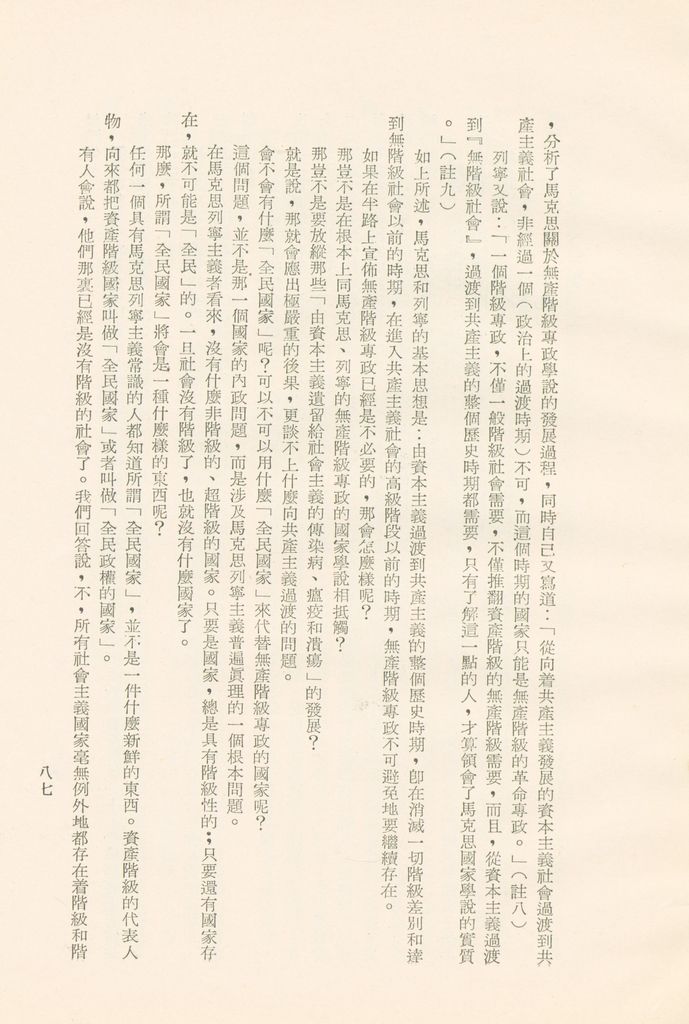 ，分析了馬克思關於無產階級專政學說的發展過程，同時自己又寫道：「從向着共產主義發展的資本主義社會過渡到共
產主義社會，非經過一個（政治上的過渡時期）不可，而這個時期的國家只能是無產階級的革命專政。」（註八）
列寧又說：「一個階級專政，不僅一般階級社會需要，不僅推翻資產階級的無產階級需要，而且，從資本主義過渡
到『無階級社會』，過渡到共產主義的整個歷史時期都需要，只有了解這一點的人，才算領會了馬克思國家學說的實質
。」（註九）
如上所述，馬克思和列寧的基本思想是：由資本主義過渡到共產主義的整個歷史時期，卽在消滅一切階級差別和達
到無階級社會以前的時期，在進入共產主義社會的高級階段以前的時期，無產階級專政不可避免地要繼續存在。
如果在半路上宣佈無產階級專政已經是不必要的，那會怎麼樣呢？
那豈不是在根本上同馬克思、列寧的無產階級專政的國家學說相抵觸？
那豈不是要放縱那些「由資本主義遺留給社會主義的傳染病、瘟疫和潰瘍」的發展？
就是說，那就會應出極嚴重的後果，更談不上什麼向共產主義過渡的問題。
會不會有什麼「全民國家」呢？可以不可以用什麼「全民國家」來代替無產階級專政的國家呢？
這個問題，並不是那一個國家的內政問題，而是涉及馬克思列寧主義普遍眞理的一個根本問題。
在馬克思列寧主義者看來，沒有什麼非階級的、超階級的國家。只要是國家，總是具有階級性的；只要還有國家存
在，就不可能是「全民」的。一旦社會沒有階級了，也就沒有什麼國家了。
那麼，所謂「全民國家」將會是一種什麼樣的東西呢？
任何一個具有馬克思列寧主義常識的人都知道所謂「全民國家」，並不是一件什麼新鮮的東西。資產階級的代表人
物，向來都把資產階級國家叫做「全民國家」或者叫做「全民政權的國家」。
有人會說，他們那裏已經是沒有階級的社會了。我們回答說，不，所有社會主義國家毫無例外地都存在着階級和階
八七